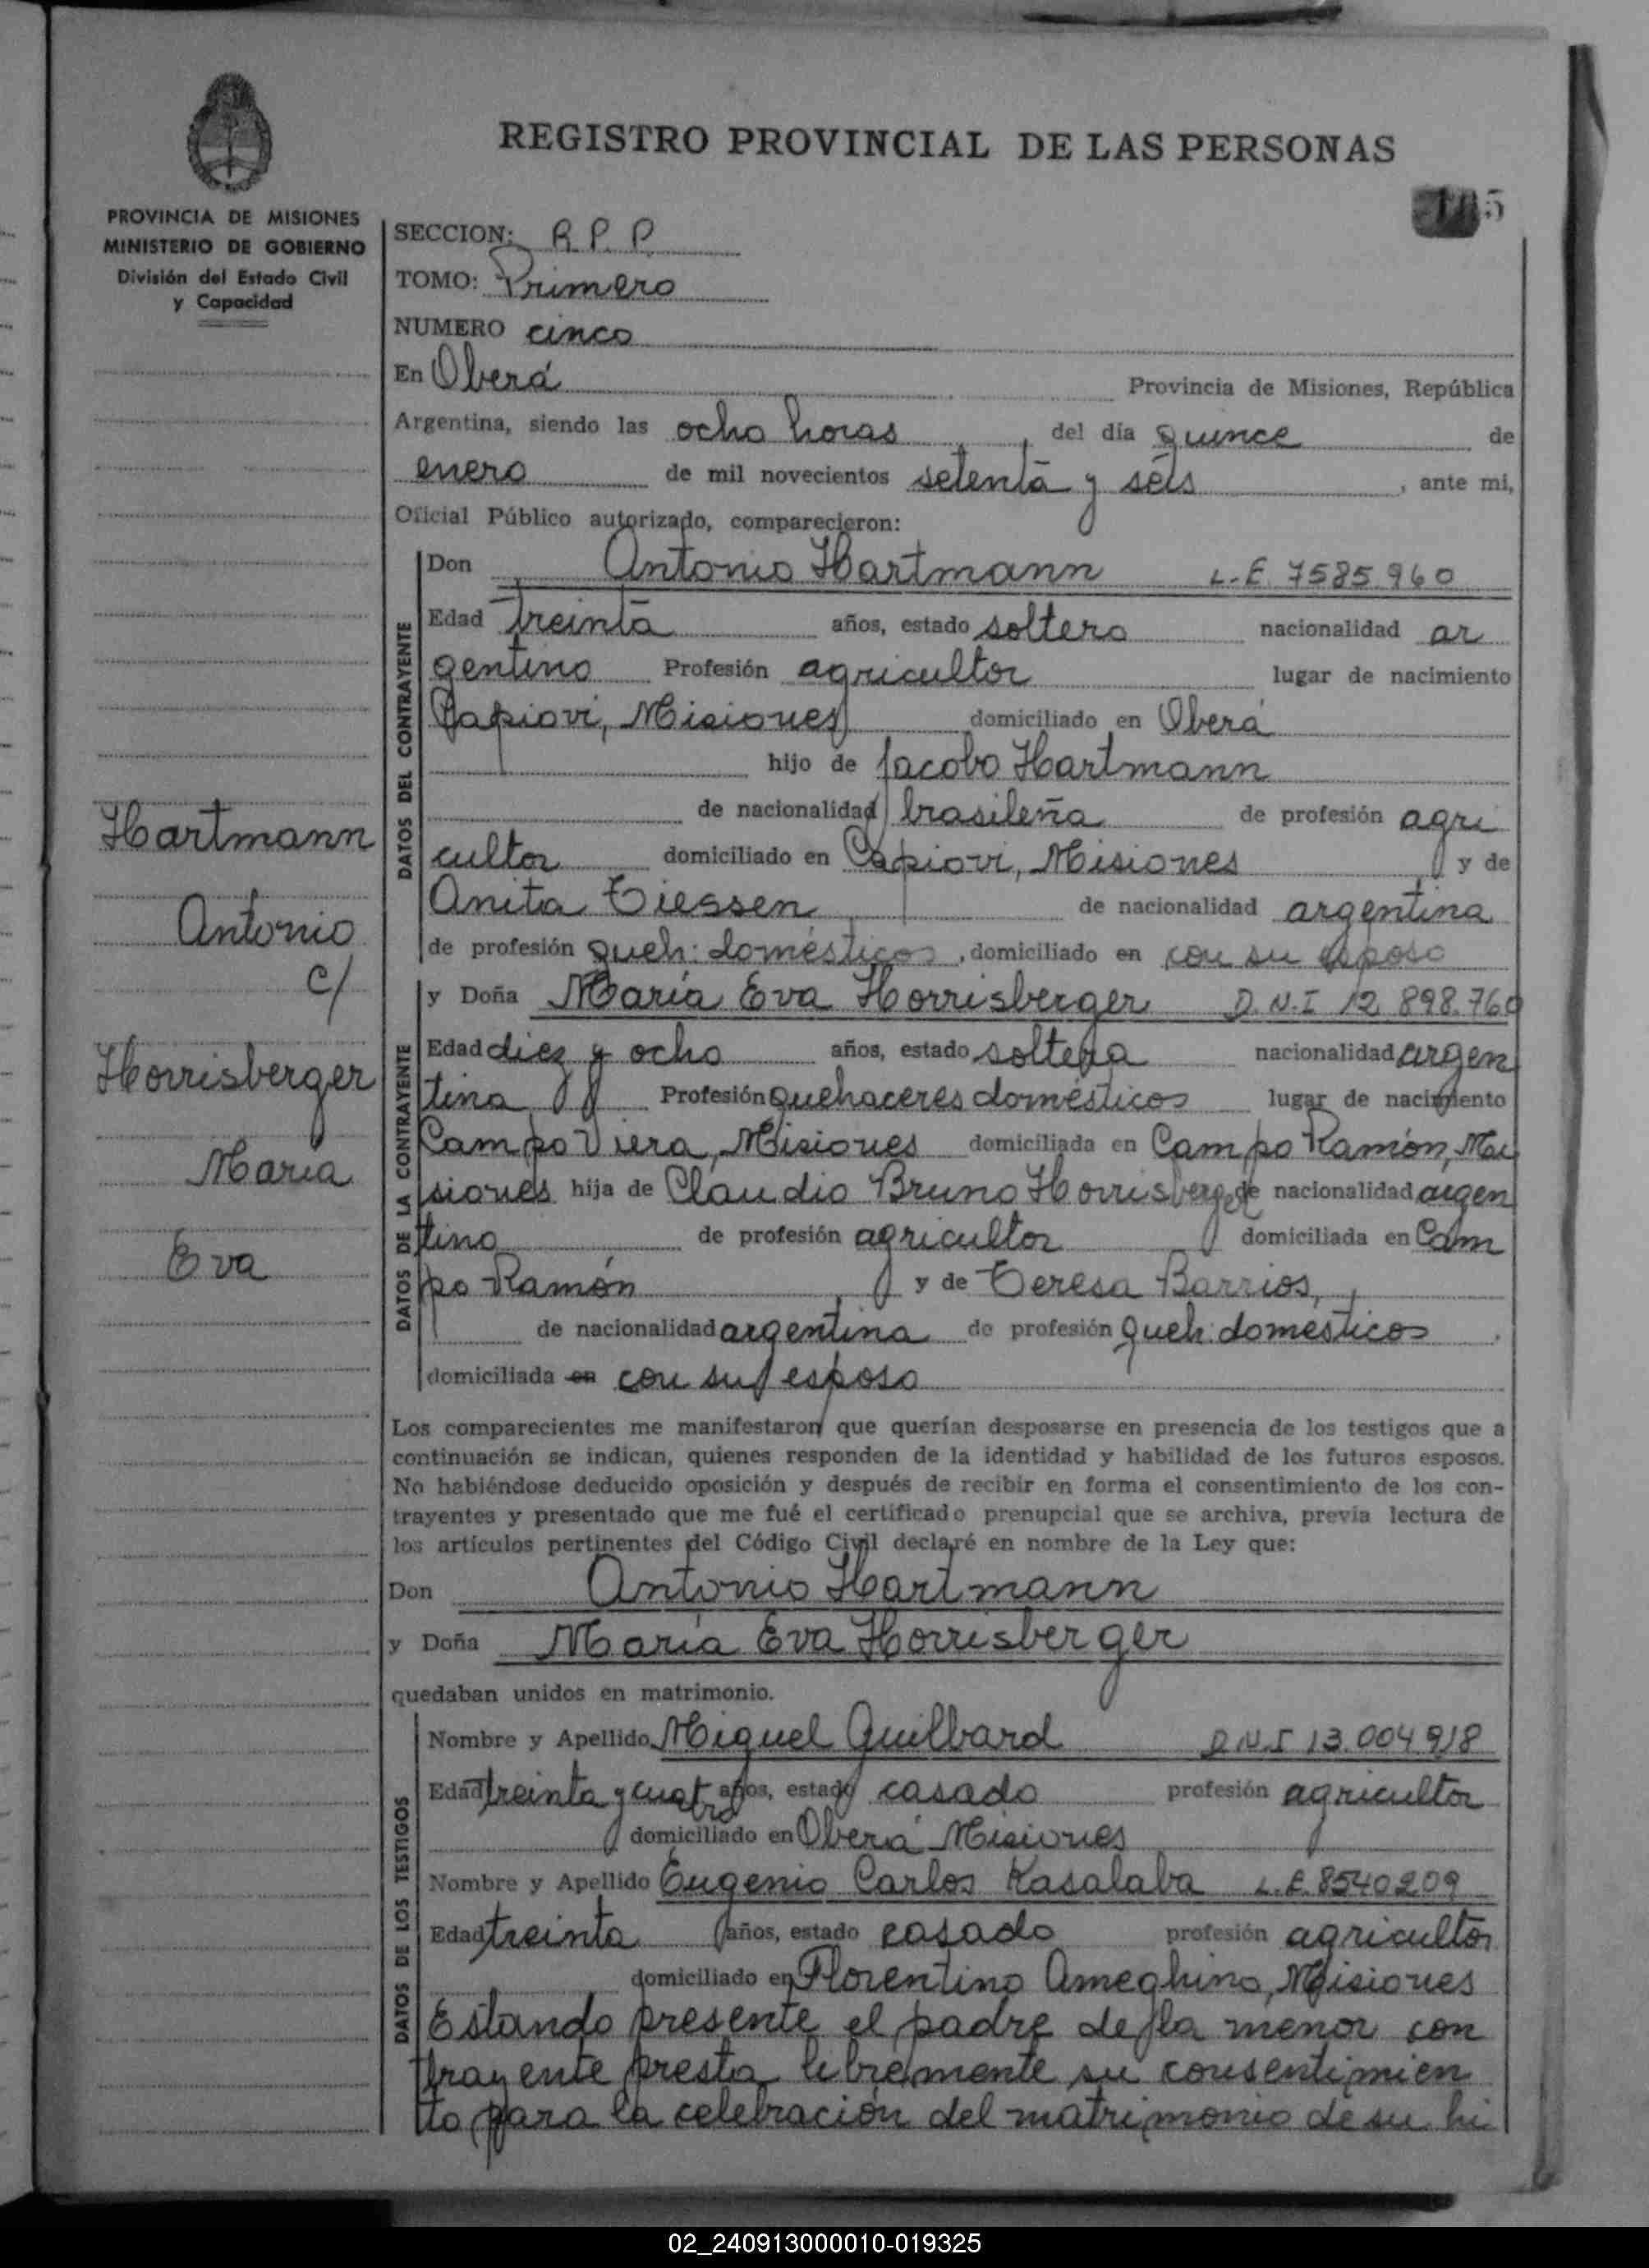 REGISTRO PROVINCIAL DE LAS PERSONAS
5
PROVINCIA DE MISIONES
MINISTERIO DE GOBIERNO
División del Estado Civil
y Capacidad
SECCION: R.P.P.
TOMO: Primero
NUMERO cinco
En Oberá Provincia de Misiones, República
Argentina, siendo las ocho horas, del día quince de
enero de mil novecientos setenta y seis, ante mi,
Oficial Público autorizado, comparecieron:
DATOS DEL CONTRAYENTE
Don Antonio Hartmann L.E. 7585960
Edad treinta años, estado soltero nacionalidad ar
gentino Profesión agricultor lugar de nacimiento
Capiovi, Misiones domiciliado en Oberá
hijo de Jacobo Hartmann
de nacionalidad brasileña de profesión agri
cultor domiciliado en Capiovi, Misiones y de
Anita Tiessen de nacionalidad argentina
de profesión queh: domésticos, domiciliado en con su esposo
Hartmann
Antonio
c/
Horrisberger
Maria
Eva
DATOS DE LA CONTRAYENTE
y Doña María Eva Horrisberger D.N.I 12 898.760
Edad diez y ocho años, estado soltera nacionalidad argen
tina Profesión quehaceres domésticos lugar de nacimiento
Campo Viera, Misiones domiciliada en Campo Ramón, Mi
siones hija de Claudio Bruno Horrisberger de nacionalidad argen
tino de profesión agricultor domiciliada en Cam
po Ramón y de Teresa Barrios,
de nacionalidad argentina de profesión queh: domesticos
domiciliada en con su esposo
Los comparecientes me manifestaron que querían desposarse en presencia de los testigos que a
continuación se indican, quienes responden de la identidad y habilidad de los futuros esposos.
No habiéndose deducido oposición y después de recibir en forma el consentimiento de los con-
trayentes y presentado que me fué el certificado prenupcial que se archiva, previa lectura de
los artículos pertinentes del Código Civil declaré en nombre de la Ley que:
Don Antonio Hartmann
y Doña María Eva Horrisberger
quedaban unidos en matrimonio.
DATOS DE LOS TESTIGOS
Nombre y Apellido Miguel Guilbard D.N.I 13.004.918
Edad treinta y cuatro años, estado casado profesión agricultor
domiciliado en Oberá Misiones
Nombre y Apellido Eugenio Carlos Kasalaba L.E. 8540209
Edad treinta años, estado casado profesión agricultor
domiciliado en Florentino Ameghino, Misiones
Estando presente el padre de la menor con
trayente presta libremente su consentimien
to para la celebración del matrimonio de su hi
02_240913000010-019325